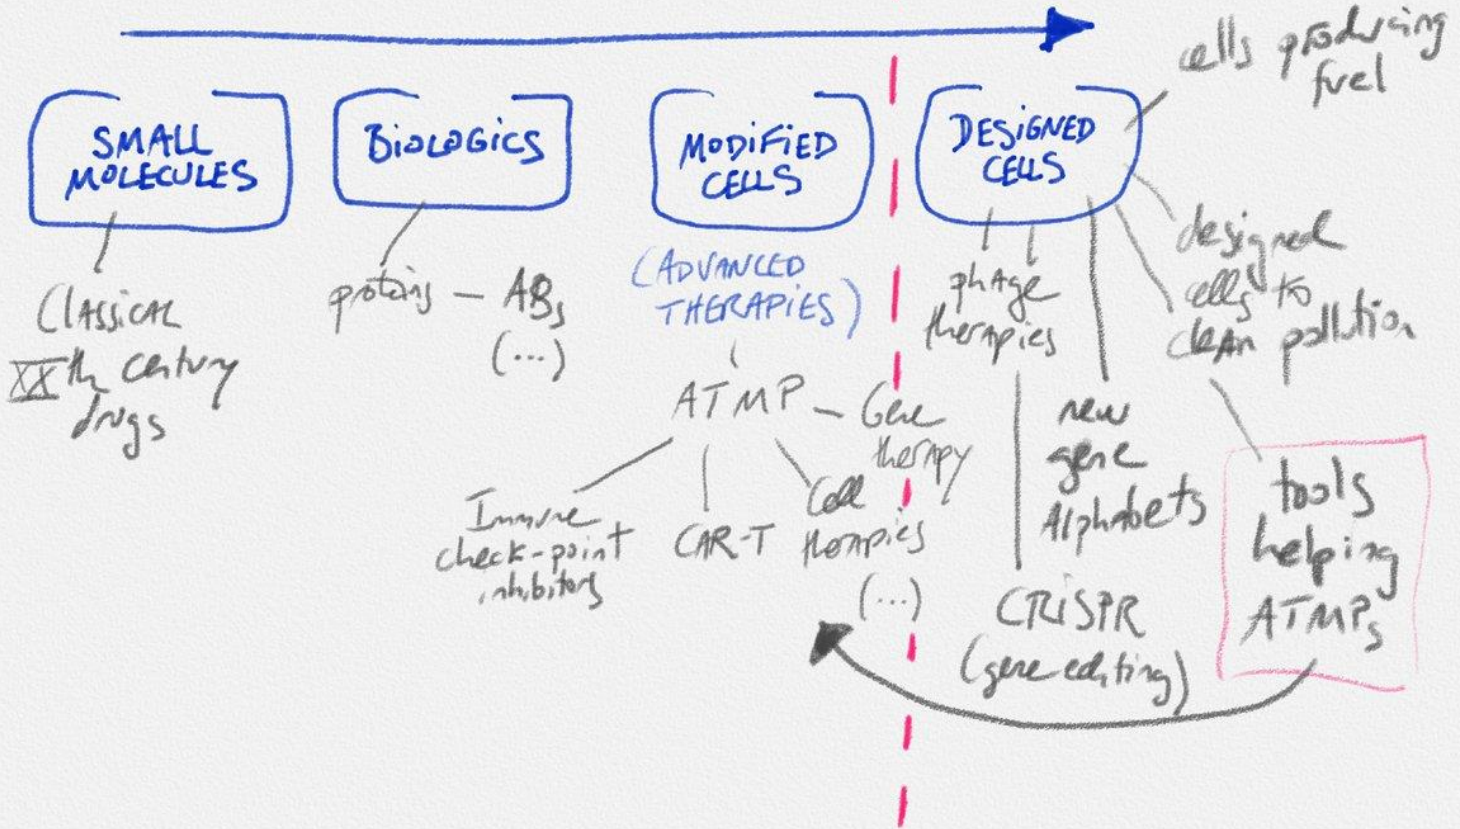 SMALL
MOLECULES
Classical
XXth century
drugs
BiOLOGiCS
proteins – ABs
(...)
MODiFiED
CELLS
(ADVANCED
THERAPiES)
ATMP – Gene
therapy
Immune
check-point
inhibitors
CAR-T
Cell
therapies
(...)
DESiGNED
CELLS
cells producing
fuel
phage
therapies
designed
cells to
clean pollution
new
gene
Alphabets
CRiSPR
(gene editing)
tools
helping
ATMPs